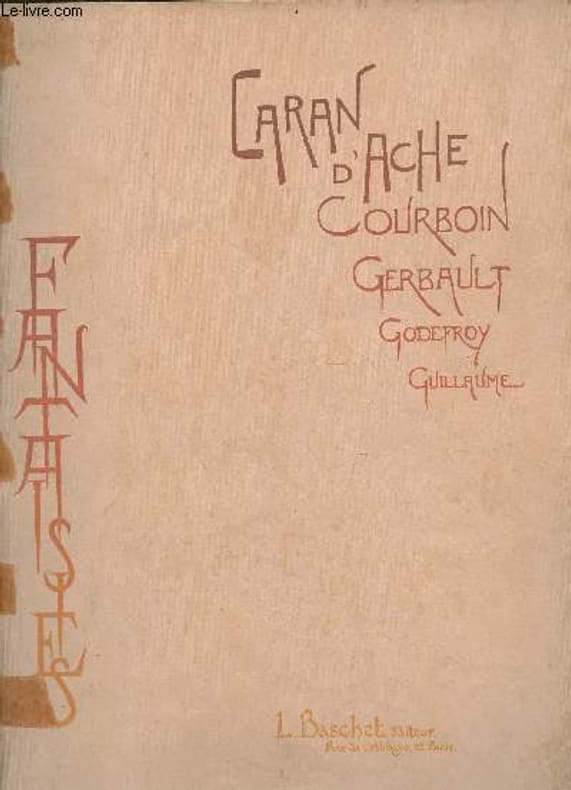 Le-livre.com
CARAN
D'ACHE
COURBOIN
GERBAULT
GODEFROY
GUILLAUME
FANTAISIES
L. Baschet Editeur,
Rue de l'Abbaye, 12 Paris.